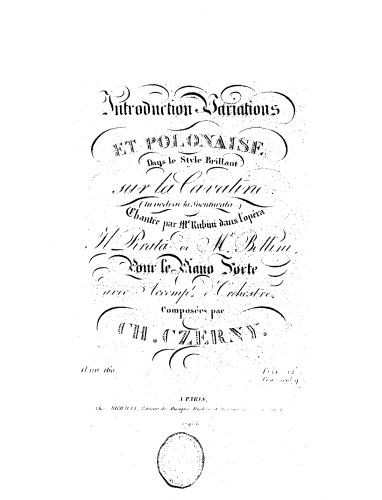 Introduction Variations
ET POLONAISE
Dans le Style Brillant
sur la Cavatine
(tu vedrai la Sventurata)
Chantée par Mr. Rubini dans l'opéra
Il Pirata de Mr. Bellini
Pour le Piano Forte
avec Accompt. d'Orchestre
Composées par
CH. CZERNY.
Œuv. 160.
A PARIS,
Editeur de Musique